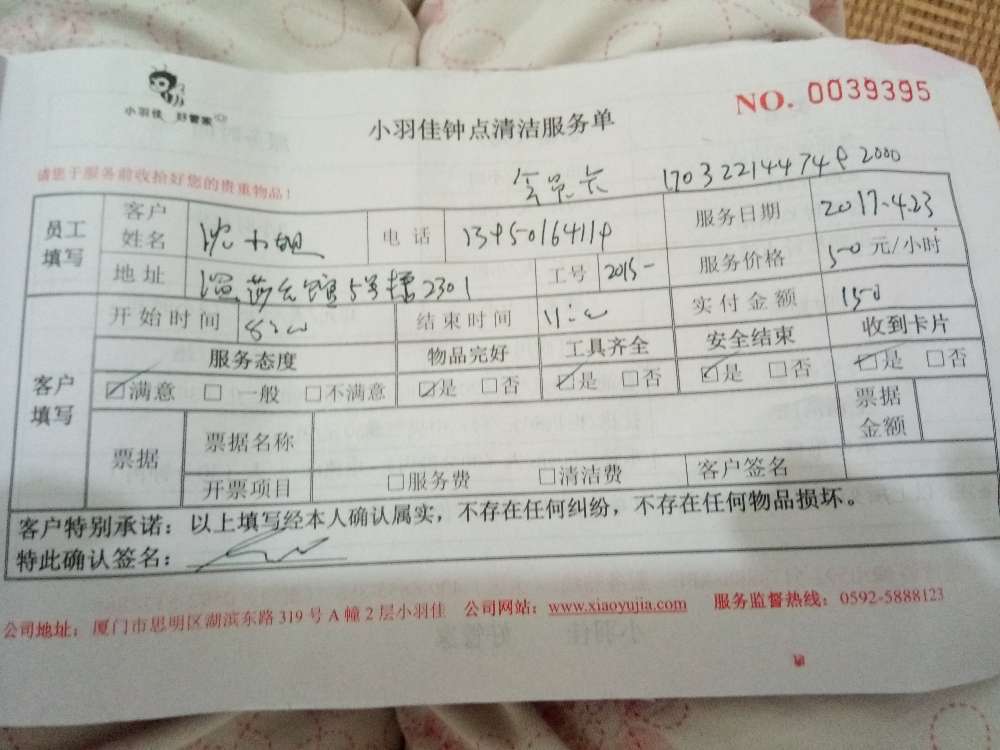 小羽佳 好管家
NO. 0039395
小羽佳钟点清洁服务单
请您于服务前收拾好您的贵重物品!
会员卡 170322144740 2000
员工填写 客户姓名 沈小姐 电话 服务日期 2017.4.23
地址 5号楼2301 工号 2015- 服务价格 50元/小时
客户填写 开始时间 8:00 结束时间 11:00 实付金额 150
服务态度 物品完好 工具齐全 安全结束 收到卡片
☑满意 □一般 □不满意 ☑是 □否 ☑是 □否 ☑是 □否 ☑是 □否
票据 票据名称 票据金额
开票项目 □服务费 □清洁费 客户签名
客户特别承诺：以上填写经本人确认属实，不存在任何纠纷，不存在任何物品损坏。
特此确认签名：
公司地址：厦门市思明区湖滨东路319号A幢2层小羽佳 公司网站：www.xiaoyujia.com 服务监督热线：0592-5888123